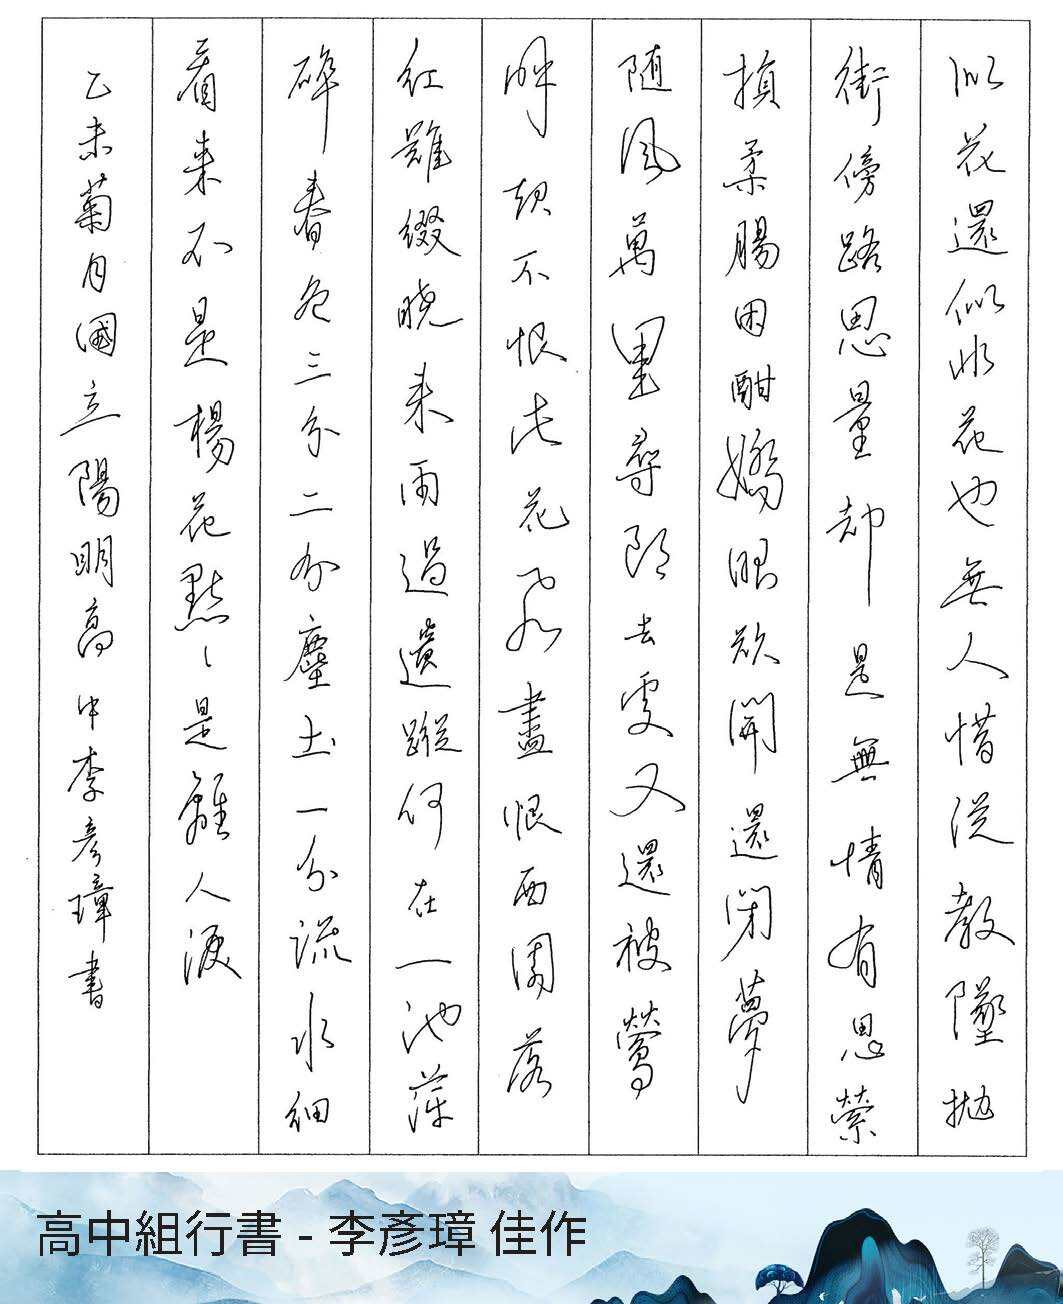 似花還似非花也無人惜從教墜拋
街傍路思量却是無情有思縈
損柔腸困酣嬌眼欲開還閉夢
随風萬里尋郎去處又還被鶯
呼起不恨此花飛盡恨西園落
紅難綴曉來雨過遺蹤何在一池萍
碎春色三分二分塵土一分流水細
看來不是楊花點〻是離人淚
乙未菊月國立陽明高中李彥璋書
高中組行書 - 李彥璋 佳作